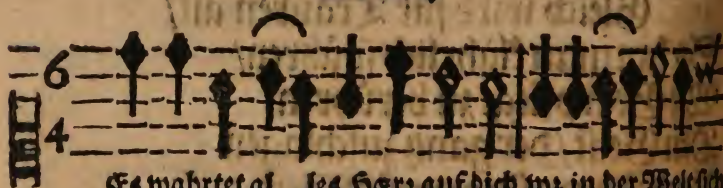 6
4
Es wahrtet al les HErꝛ auf dich wz in der Welt sich